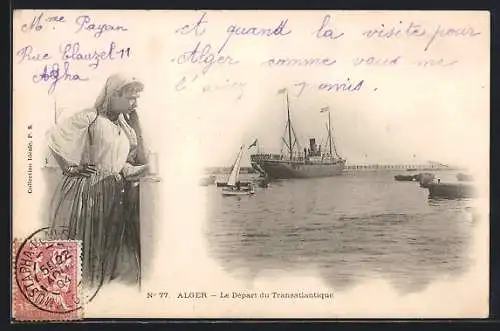 Mme Payan
Rue Clauzel 11
Agha
Et quand la visite pour
Alger comme vous me
l'avez promis.
Collection Idéale, P. S.
MUSTAPHA
No 77. ALGER – Le Départ du Transatlantique